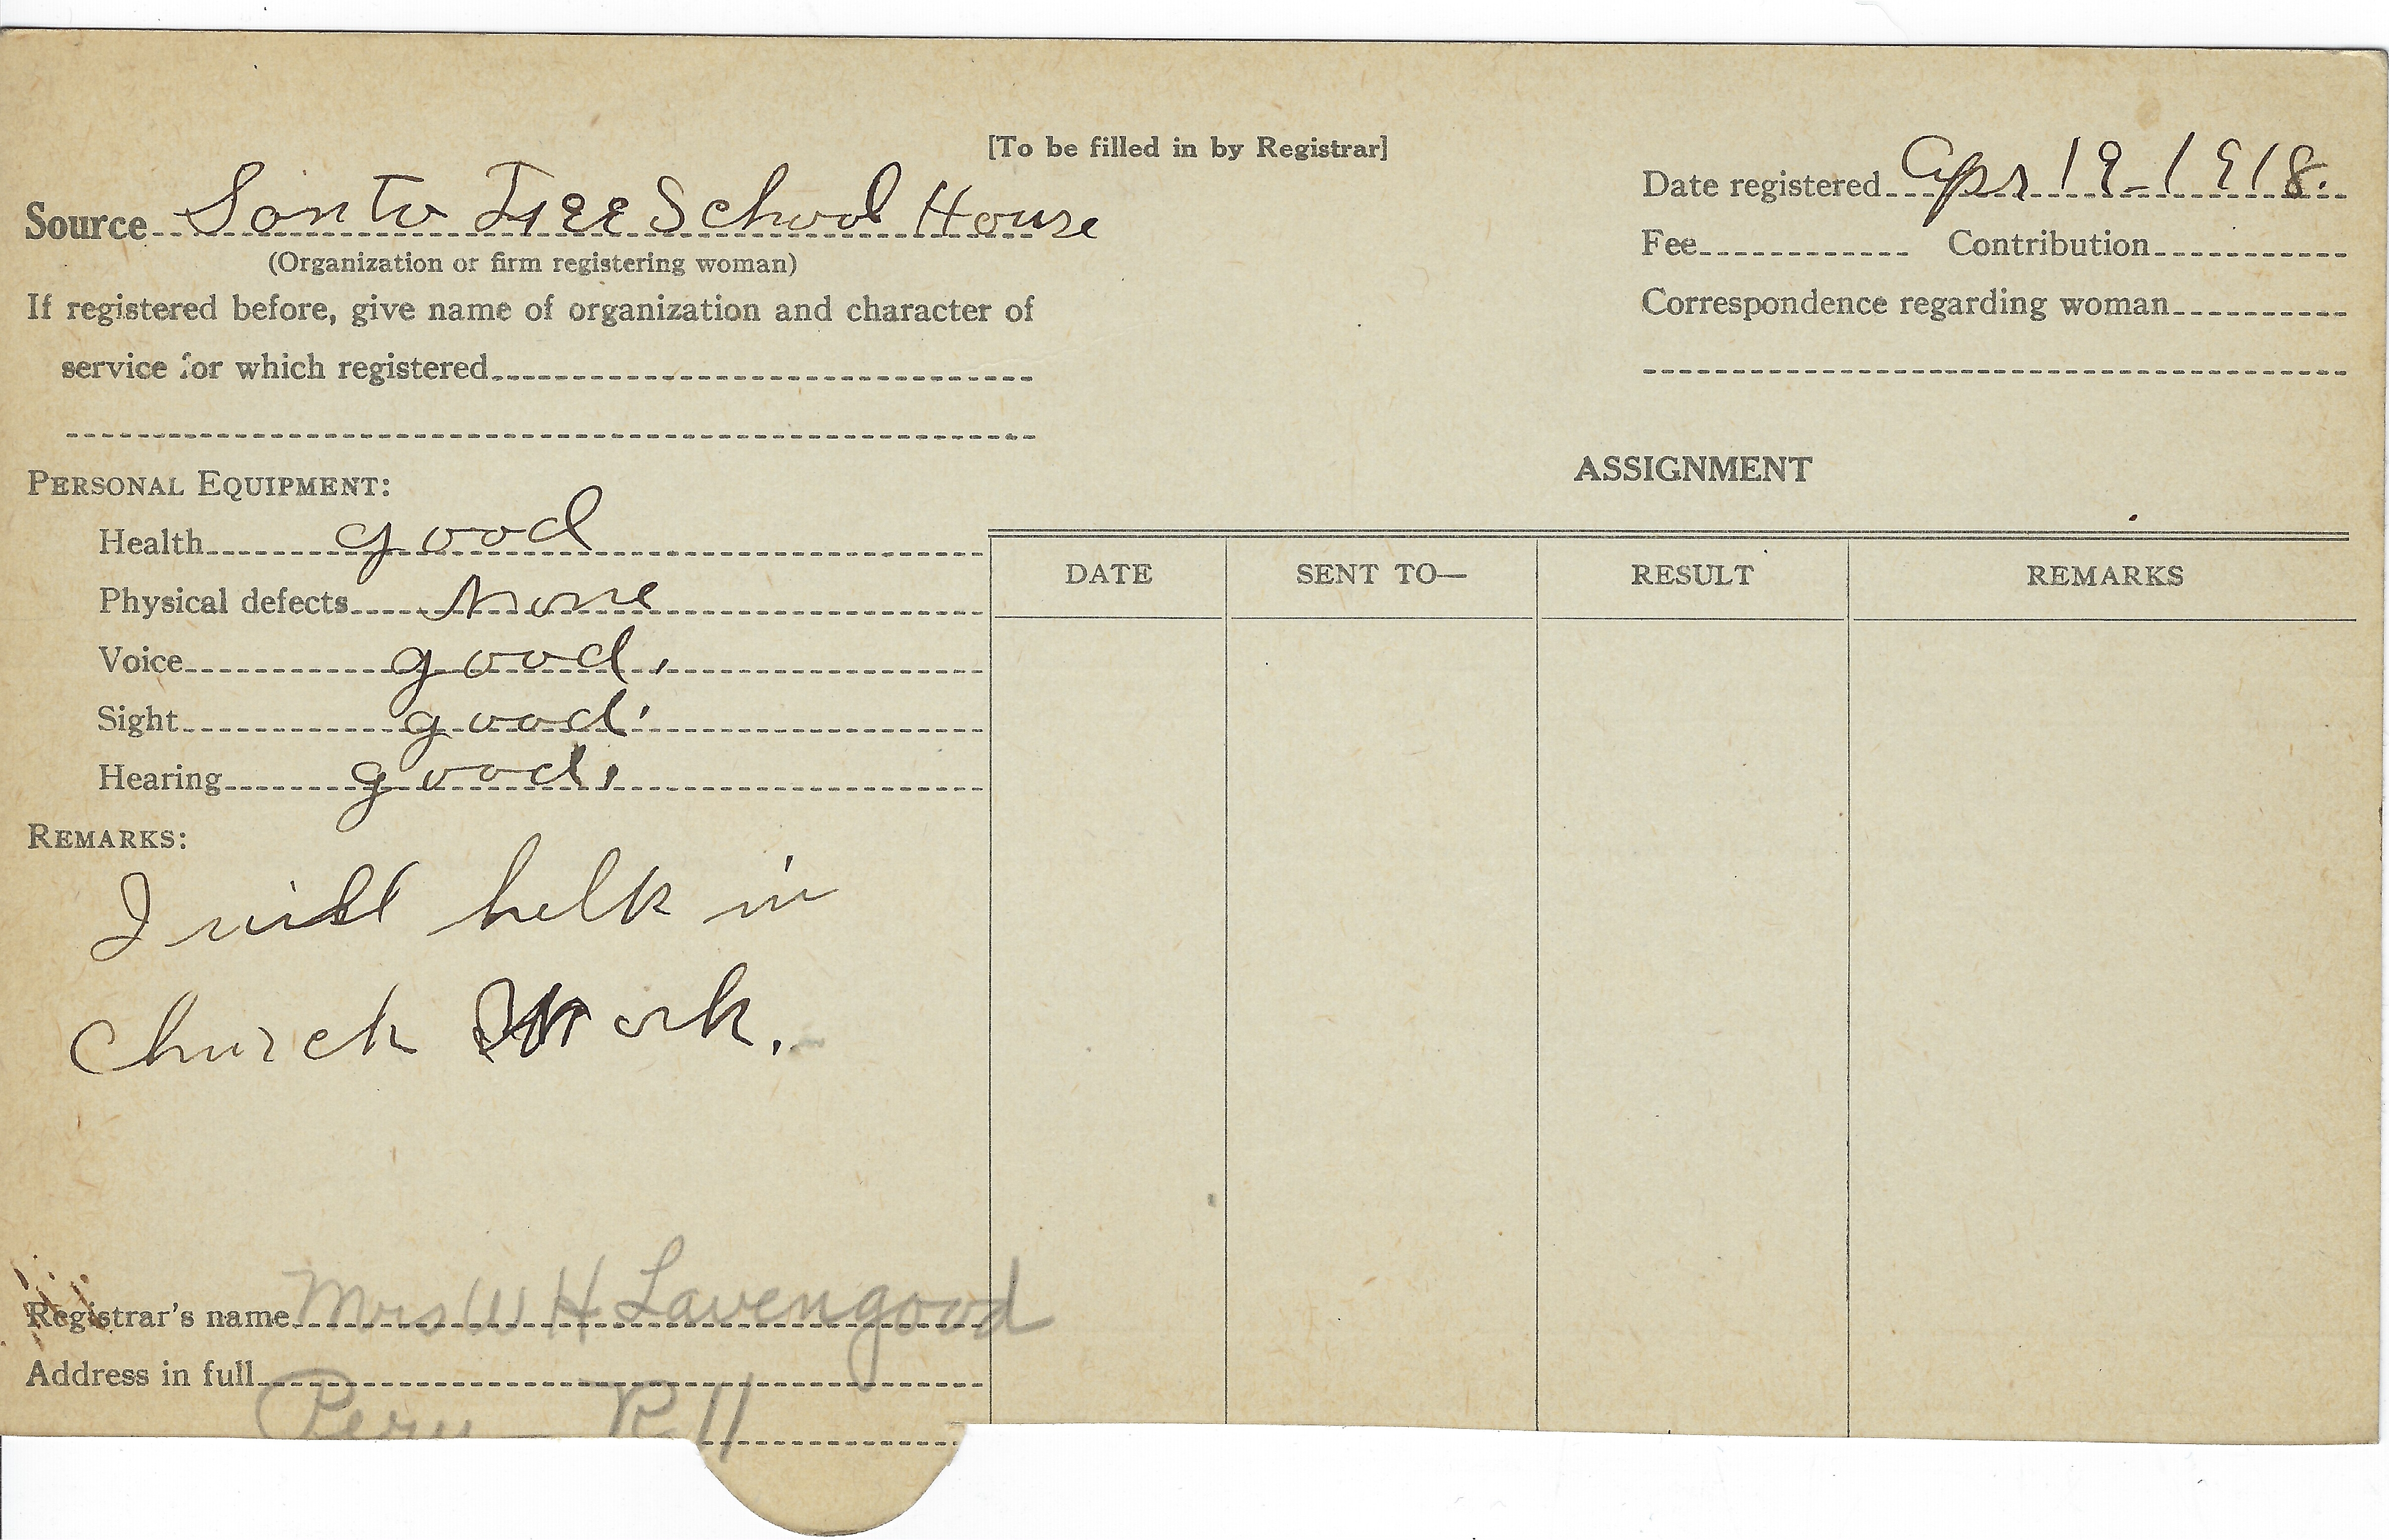 [To be filled in by Registrar]
Source Santo Free School House
(Organization or firm registering woman)
If registered before, give name of organization and character of
service for which registered
Date registered Apr 19-1918.
Fee Contribution
Correspondence regarding woman
PERSONAL EQUIPMENT:
Health good
Physical defects None
Voice good.
Sight good.
Hearing good.
REMARKS:
I will help in
Church Work.
ASSIGNMENT
DATE SENT TO— RESULT REMARKS
Registrar's name Mrs W H Lavengood
Address in full
Peru - R 11